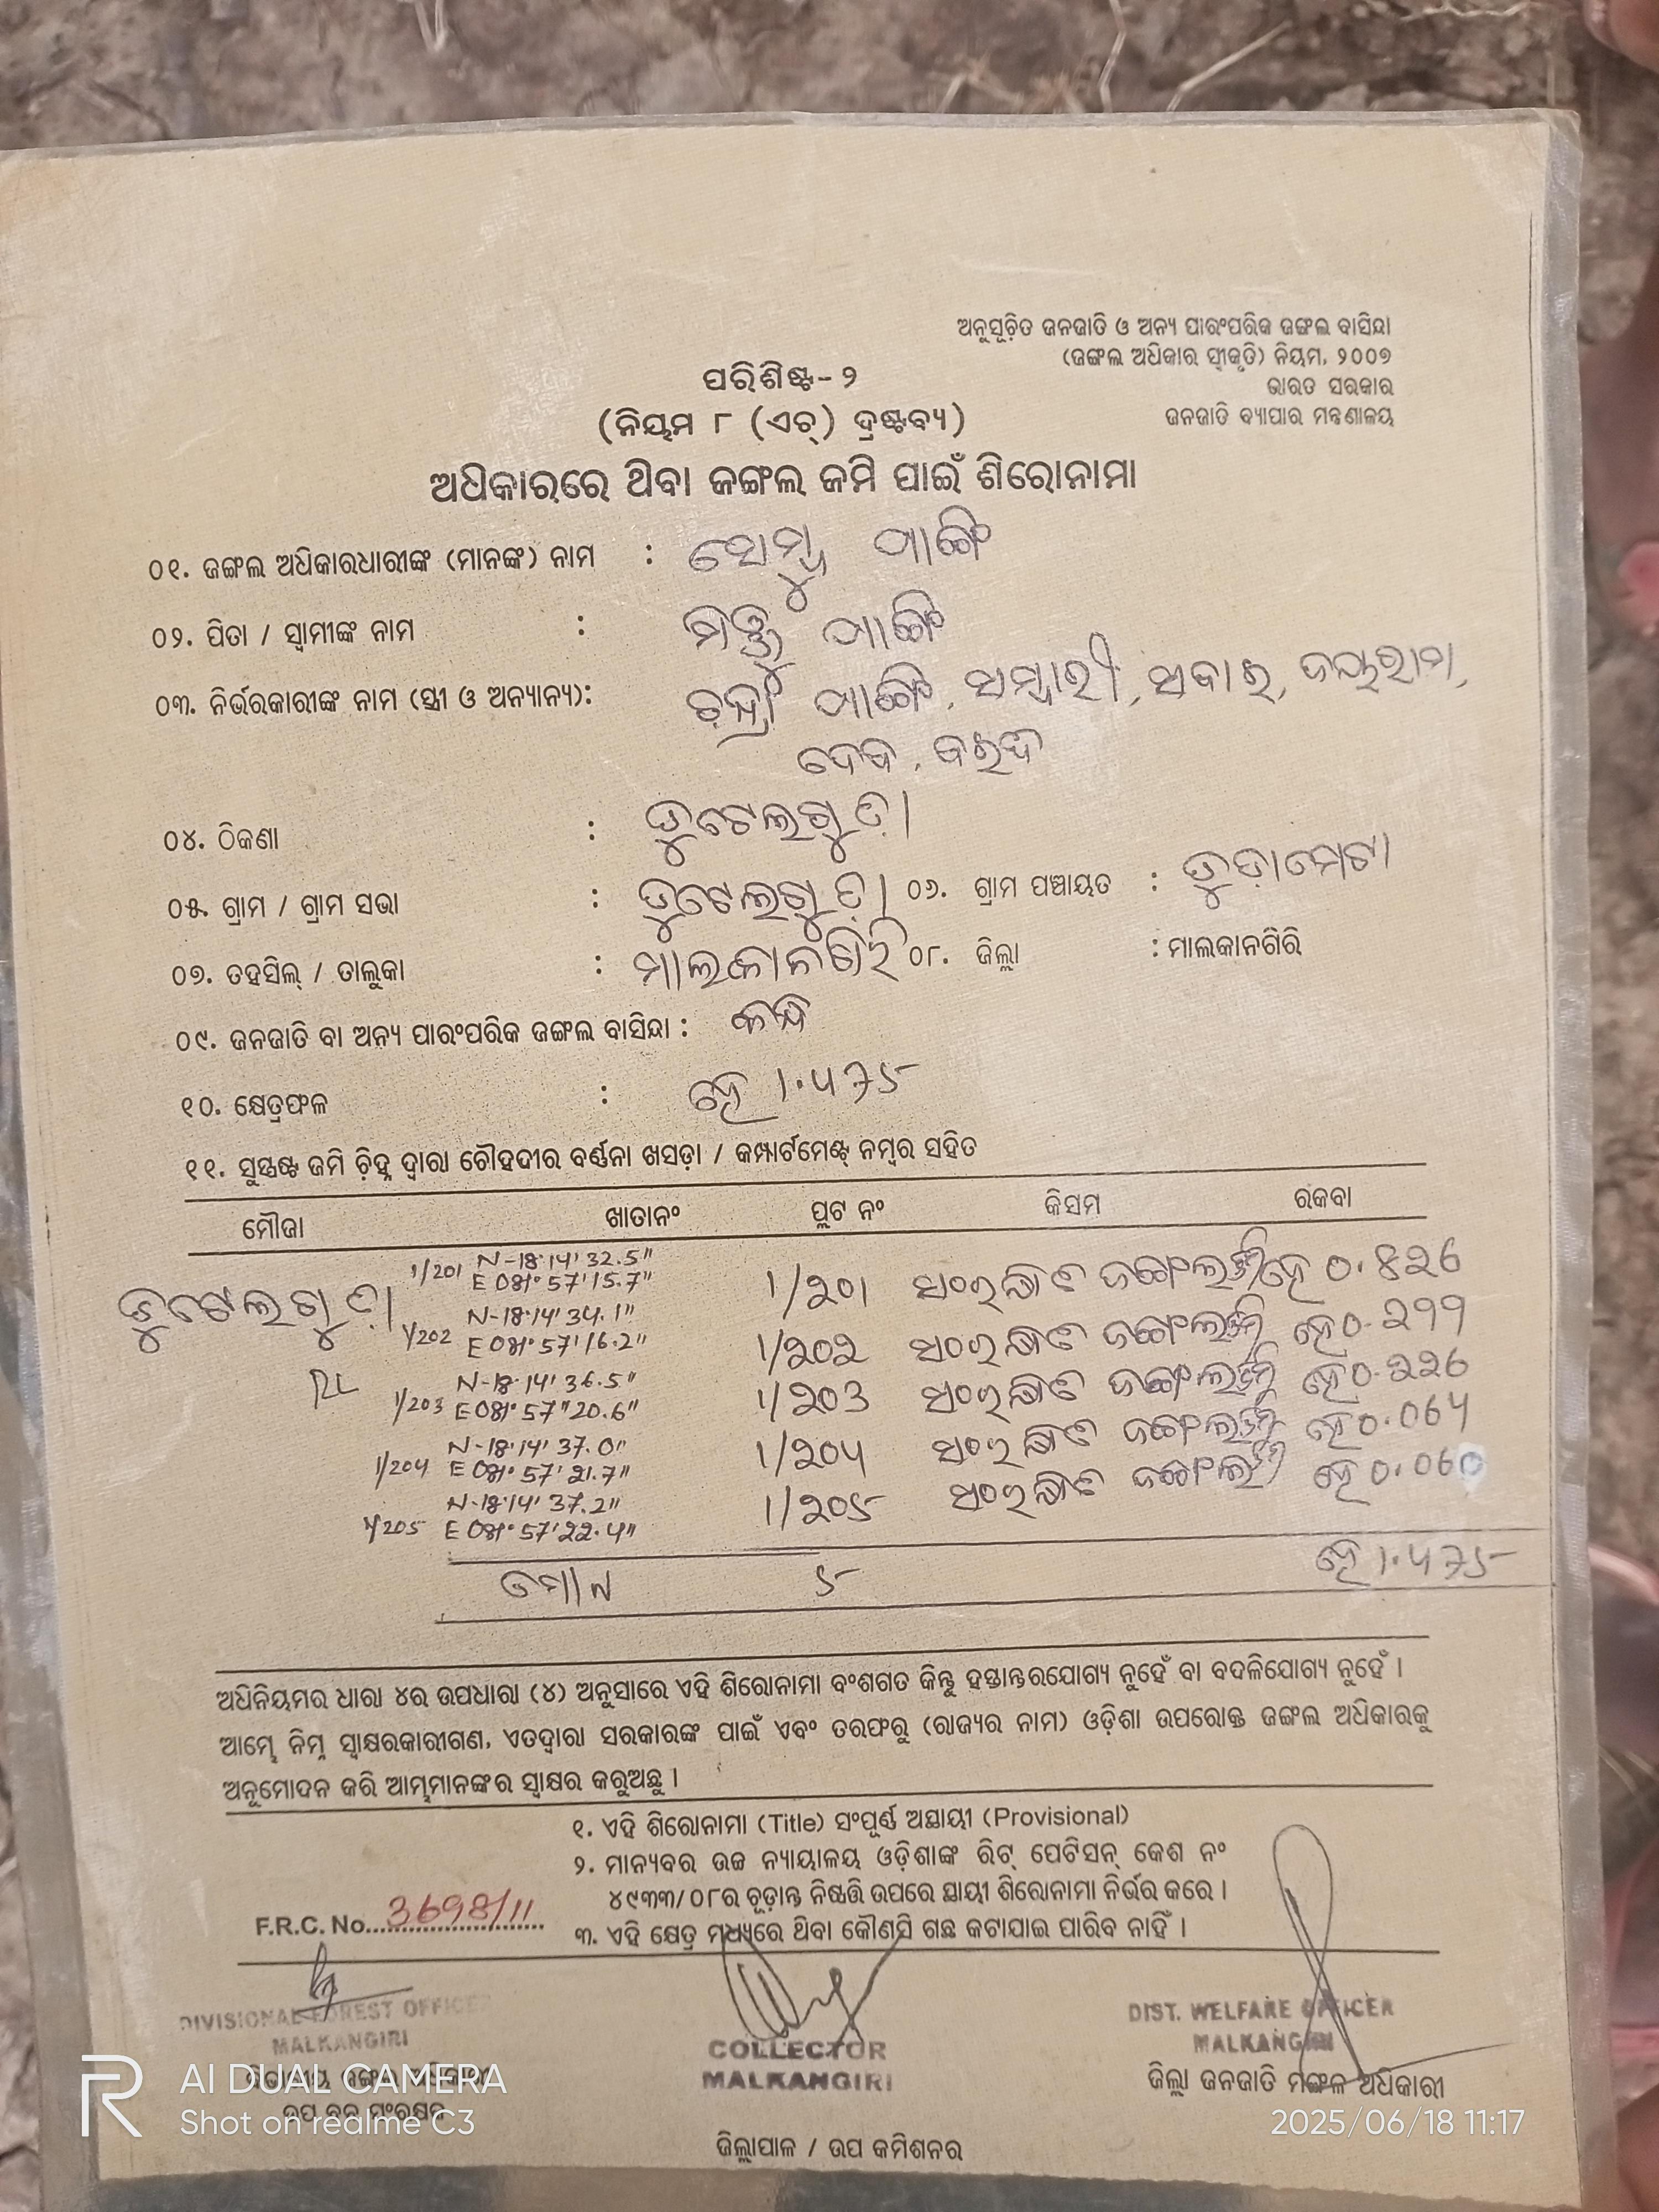 ଅନୁସୂଚିତ ଜନଜାତି ଓ ଅନ୍ୟ ପାରଂପରିକ ଜଙ୍ଗଲ ବାସିନ୍ଦା
(ଜଙ୍ଗଲ ଅଧିକାର ସ୍ୱୀକୃତି) ନିୟମ, ୨୦୦୭
ଭାରତ ସରକାର
ଜନଜାତି ବ୍ୟାପାର ମନ୍ତ୍ରଣାଳୟ
ପରିଶିଷ୍ଟ- ୨
(ନିୟମ ୮ (ଏଚ୍) ଦ୍ରଷ୍ଟବ୍ୟ)
ଅଧିକାରରେ ଥିବା ଜଙ୍ଗଲ ଜମି ପାଇଁ ଶିରୋନାମା
୦୧. ଜଙ୍ଗଲ ଅଧିକାରଧାରୀଙ୍କ (ମାନଙ୍କ) ନାମ : ସୋମ୍ବୁ ପାଙ୍ଗି
୦୨. ପିତା / ସ୍ୱାମୀଙ୍କ ନାମ : ପାଙ୍ଗି
୦୩. ନିର୍ଭରକାରୀଙ୍କ ନାମ (ସ୍ତ୍ରୀ ଓ ଅନ୍ୟାନ୍ୟ): ପାଙ୍ଗି, ସମ୍ବାରୀ, ଜୟରାମ,
ଦେବ,
୦୪. ଠିକଣା : ଡୁଟେଲଗୁଡ଼ା
୦୫. ଗ୍ରାମ / ଗ୍ରାମ ସଭା : ଡୁଟେଲଗୁଡ଼ା ୦୬. ଗ୍ରାମ ପଞ୍ଚାୟତ : ଡୁଡ଼ାମେଟା
୦୭. ତହସିଲ୍ / ତାଲୁକା : ମାଲକାନଗିରି ୦୮. ଜିଲ୍ଲା : ମାଲକାନଗିରି
୦୯. ଜନଜାତି ବା ଅନ୍ୟ ପାରଂପରିକ ଜଙ୍ଗଲ ବାସିନ୍ଦା : କନ୍ଧ
୧୦. କ୍ଷେତ୍ରଫଳ : ହେ
୧୧. ସୁସ୍ପଷ୍ଟ ଜମି ଚିହ୍ନ ଦ୍ୱାରା ଚୌହଦୀର ବର୍ଣ୍ଣନା ଖସଡ଼ା / କମ୍ପାର୍ଟମେଣ୍ଟ୍ ନମ୍ବର ସହିତ
ମୌଜା ଖାତାନଂ ପ୍ଲଟ ନଂ କିସମ ରକବା
1/201 N-18°14' 32.5"
E 081° 57' 15.7" 1/୨୦1 ସଂରକ୍ଷିତ ଜଙ୍ଗଲ ହେ
ଡୁଟେଲଗୁଡ଼ା
1/202 N-18°14' 34.1"
E 081° 57' 16.2" 1/୨୦୨ ସଂରକ୍ଷିତ ଜଙ୍ଗଲ ହେ
RL
1/203 N-18°14' 36.5"
E 081° 57" 20.6" 1/୨୦୩ ସଂରକ୍ଷିତ ଜଙ୍ଗଲ ହେ
1/204 N-18°14' 37.0"
E 081° 57' 21.7" 1/୨୦୪ ସଂରକ୍ଷିତ ଜଙ୍ଗଲ ହେ
1/205 N-18°14' 37.2"
E 081° 57' 22.4" 1/୨୦୫ ସଂରକ୍ଷିତ ଜଙ୍ଗଲ ହେ
ମୋଟ ୫ ହେ
ଅଧିନିୟମର ଧାରା ୪ର ଉପଧାରା (୪) ଅନୁସାରେ ଏହି ଶିରୋନାମା ବଂଶଗତ କିନ୍ତୁ ହସ୍ତାନ୍ତରଯୋଗ୍ୟ ନୁହେଁ ବା ବଦଳିଯୋଗ୍ୟ ନୁହେଁ ।
ଆମ୍ଭେ ନିମ୍ନ ସ୍ୱାକ୍ଷରକାରୀଗଣ, ଏତଦ୍ୱାରା ସରକାରଙ୍କ ପାଇଁ ଏବଂ ତରଫରୁ (ରାଜ୍ୟର ନାମ) ଓଡ଼ିଶା ଉପରୋକ୍ତ ଜଙ୍ଗଲ ଅଧିକାରକୁ
ଅନୁମୋଦନ କରି ଆମ୍ଭମାନଙ୍କର ସ୍ୱାକ୍ଷର କରୁଅଛୁ ।
୧. ଏହି ଶିରୋନାମା (Title) ସଂପୂର୍ଣ୍ଣ ଅସ୍ଥାୟୀ (Provisional)
୨. ମାନ୍ୟବର ଉଚ୍ଚ ନ୍ୟାୟାଳୟ ଓଡ଼ିଶାଙ୍କ ରିଟ୍ ପେଟିସନ୍ କେଶ ନଂ
୪୯୩୩/୦୮ର ଚୂଡ଼ାନ୍ତ ନିଷ୍ପତ୍ତି ଉପରେ ସ୍ଥାୟୀ ଶିରୋନାମା ନିର୍ଭର କରେ ।
F.R.C. No. 3698/11
୩. ଏହି କ୍ଷେତ୍ର ମଧ୍ୟରେ ଥିବା କୌଣସି ଗଛ କଟାଯାଇ ପାରିବ ନାହିଁ ।
DIVISIONAL FOREST OFFICER
MALKANGIRI
ବିଭାଗୀୟ ଜଙ୍ଗଲ ଅଧିକାରୀ
ଉପ ବନ ସଂରକ୍ଷକ
COLLECTOR
MALKANGIRI
ଜିଲ୍ଲାପାଳ / ଉପ କମିଶନର
DIST. WELFARE OFFICER
MALKANGIRI
ଜିଲ୍ଲା ଜନଜାତି ମଙ୍ଗଳ ଅଧିକାରୀ
AI DUAL CAMERA
Shot on realme C3
2025/06/18 11:17